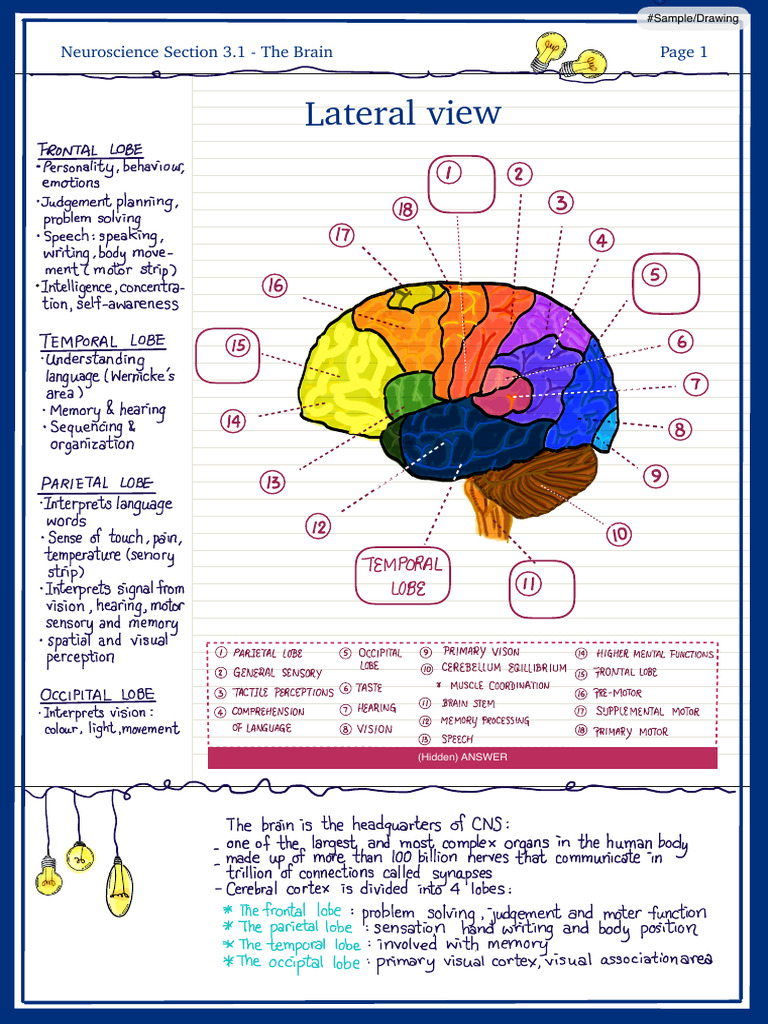 #Sample/Drawing
Neuroscience Section 3.1 - The Brain
Page 1
Lateral view
FRONTAL LOBE
• Personality, behaviour,
emotions
• Judgement planning,
problem solving
• Speech: speaking,
writing, body move-
ment ( motor strip)
• Intelligence, concentra-
tion, self-awareness
TEMPORAL LOBE
• Understanding
language (Wernicke's
area)
• Memory & hearing
• Sequencing &
organization
PARIETAL LOBE
• Interprets language
words
• Sense of touch, pain,
temperature (senory
strip)
• Interprets signal from
vision, hearing, motor
sensory and memory
• spatial and visual
perception
OCCIPITAL LOBE
• Interprets vision:
colour, light, movement
1
2
3
4
5
6
7
8
9
10
11
TEMPORAL
LOBE
12
13
14
15
16
17
18
1 PARIETAL LOBE
2 GENERAL SENSORY
3 TACTILE PERCEPTIONS
4 COMPREHENSION
OF LANGUAGE
5 OCCIPITAL
LOBE
6 TASTE
7 HEARING
8 VISION
9 PRIMARY VISON
10 CEREBELLUM EQILIBRIUM
* MUSCLE COORDINATION
11 BRAIN STEM
12 MEMORY PROCESSING
13 SPEECH
14 HIGHER MENTAL FUNCTIONS
15 FRONTAL LOBE
16 PRE-MOTOR
17 SUPPLEMENTAL MOTOR
18 PRIMARY MOTOR
(Hidden) ANSWER
The brain is the headquarters of CNS:
- one of the largest and most complex organs in the human body
- made up of more than 100 billion nerves that communicate in
trillion of connections called synapses
- Cerebral cortex is divided into 4 lobes:
* The frontal lobe : problem solving, judgement and moter function
* The parietal lobe : sensation hand writing and body position
* The temporal lobe : involved with memory
* The occiptal lobe : primary visual cortex, visual association area